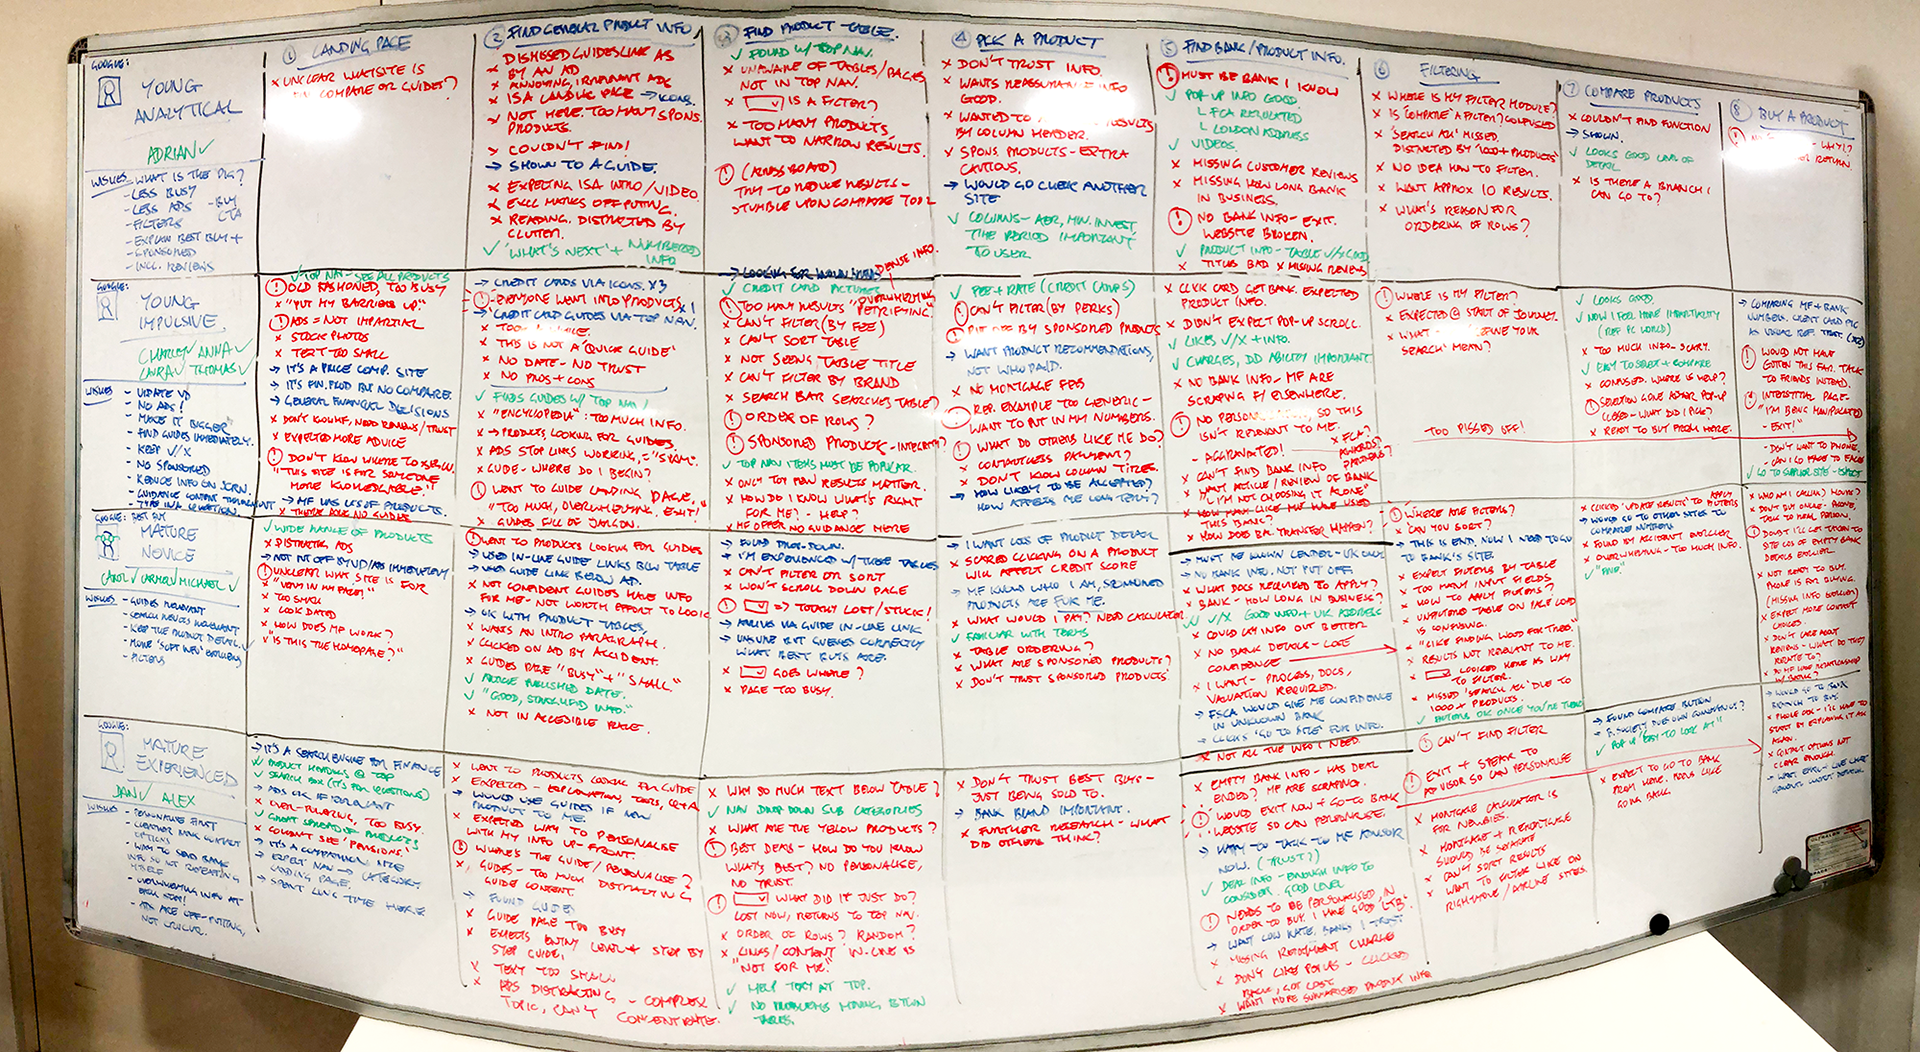 ① LANDING PAGE
② FIND GENERAL PRODUCT INFO
③ FIND PRODUCT TABLE.
④ PICK A PRODUCT
⑤ FIND BANK/PRODUCT INFO.
⑥ FILTERING
⑦ COMPARE PRODUCTS
⑧ BUY A PRODUCT
GOOGLE:
YOUNG
ANALYTICAL
ADRIAN ✓
WISHES
- WHAT IS THE PIG?
- LESS BUSY
- LESS ADS - BUY CTA
- FILTERS
- EXPLAIN BEST BUY +
SPONSORED
- INCL. REVIEWS
x UNCLEAR WHAT SITE IS
COMPARE OR GUIDES?
x DISMISSED GUIDES LINK AS
BY AN AD
x ANNOYING, IRRELEVANT ADS
x ISA LANDING PAGE → ICONS.
x NOT HERE. TOO MANY SPONS.
PRODUCTS.
x COULDN'T FIND!
→ SHOWN TO A GUIDE.
x EXPECTING ISA INTRO/VIDEO.
x EXCL MARKS OFF PUTTING.
x READING. DISTRACTED BY
CLUTTER.
✓ 'WHAT'S NEXT' + NUMBERED
INFO
✓ FOUND W/ TOP NAV.
x UNAWARE OF TABLES/PAGES
NOT IN TOP NAV.
x IS A FILTER?
x TOO MANY PRODUCTS,
WANT TO NARROW RESULTS.
! (ACROSS BOARD)
TRY TO REDUCE RESULTS -
STUMBLE UPON COMPARE TOOL
x DON'T TRUST INFO.
x WANTS REASSURANCE INFO
GOOD.
x WANTED TO RESULTS
BY COLUMN HEADER.
x SPONS. PRODUCTS - EXTRA
CAUTIOUS.
→ WOULD GO CHECK ANOTHER
SITE
✓ COLUMNS - AER, MIN. INVEST,
TIME PERIOD IMPORTANT
TO USER.
! MUST BE BANK I KNOW
✓ POP UP INFO GOOD
L FCA REGULATED
L LONDON ADDRESS
✓ VIDEOS.
x MISSING CUSTOMER REVIEWS
x MISSING HOW LONG BANK
IN BUSINESS.
! NO BANK INFO - EXIT.
WEBSITE BROKEN.
✓ PRODUCT INFO - TABLE V/X GOOD
x TITLES BAD x MISSING REVIEWS
x WHERE IS MY FILTER MODULE?
x IS COMPARE A FILTER? CONFUSED
x 'SEARCH ALL' MISSED
DISTRACTED BY '1000+ PRODUCTS'
x NO IDEA HOW TO FILTER.
x WANT APPROX 10 RESULTS.
x WHAT'S REASON FOR
ORDERING OF ROWS?
x COULDN'T FIND FUNCTION
→ SHOWN.
✓ LOOKS GOOD LEVEL OF
DETAIL
x IS THERE A BRANCH I
CAN GO TO?
GOOGLE:
YOUNG
IMPULSIVE
CHARLEY ANNA ✓
LAURA ✓ THOMAS ✓
WISHES
- UPDATE VD
- NO ADS!
- MAKE IT BIGGER
- FIND GUIDES IMMEDIATELY.
- KEEP V/X
- NO SPONSORED
- REDUCE INFO ON SCRN.
- GUIDANCE CONTENT THROUGHOUT
- TYPE IN A QUESTION.
✓ TOP NAV - SEE ALL PRODUCTS
! OLD FASHIONED, TOO BUSY
x "PUT MY BARRIERS UP."
! ADS = NOT IMPARTIAL
x STOCK PHOTOS
x TEXT TOO SMALL
→ IT'S A PRICE COMP. SITE
→ IT'S FIN. PROD BUT NO COMPARE.
→ GENERAL FINANCIAL DECISIONS
x DON'T KNOW MF, NEED REVIEWS/TRUST
x EXPECTED MORE ADVICE
! DON'T KNOW WHERE TO BEGIN.
"THIS SITE IS FOR SOMEONE
MORE KNOWLEDGEABLE."
→ MF HAS LOTS OF PRODUCTS.
x THERE ARE NO GUIDES
→ CREDIT CARDS VIA ICONS. x3
! EVERYONE WENT INTO PRODUCTS x1
→ CREDIT CARD GUIDES VIA TOP NAV.
x THIS IS NOT A 'QUICK GUIDE'
x NO DATE - NO TRUST
x NO PROS + CONS
✓ FINDS GUIDES W/ TOP NAV!
x "ENCYCLOPEDIA": TOO MUCH INFO.
x → PRODUCTS, LOOKING FOR GUIDES.
x ADS STOP LINKS WORKING, = "SPAM."
x GUIDE - WHERE DO I BEGIN?
! WENT TO GUIDE LANDING PAGE.
"TOO MUCH, OVERWHELMING, EXIT!"
x GUIDES FULL OF JARGON.
DENSE INFO.
✓ CREDIT CARD PICTURES
! TOO MANY RESULTS "OVERWHELMING"
"PETRIFYING"
x CAN'T FILTER (BY FEE)
x CAN'T SORT TABLE
x NOT SEEING TABLE TITLE
x CAN'T FILTER BY BRAND
x SEARCH BAR SEARCHES TABLE?
! ORDER OF ROWS?
! SPONSORED PRODUCTS - INTEGRITY?
✓ TOP NAV ITEMS MUST BE POPULAR.
x ONLY TOP FEW RESULTS MATTER.
x HOW DO I KNOW WHAT'S RIGHT
FOR ME? - HELP?
x MF OFFER NO GUIDANCE HERE
✓ FEE + RATE (CREDIT CARDS)
! CAN'T FILTER (BY PERKS)
! PUT OFF BY SPONSORED PRODUCTS
→ WANT PRODUCT RECOMMENDATIONS,
NOT WHO PAID.
x NO MORTGAGE FEES
! REP. EXAMPLE TOO GENERIC -
WANT TO PUT IN MY NUMBERS.
! WHAT DO OTHERS LIKE ME DO?
x CONTACTLESS PAYMENT?
x DON'T KNOW COLUMN TITLES.
→ HOW LIKELY TO BE ACCEPTED?
HOW AFFECTS ME LONG TERM?
x CLICK CARD GET BANK. EXPECTED
PRODUCT INFO.
x DIDN'T EXPECT POP-UP SCROLL.
✓ LIKES V/X + INFO.
✓ CHARGES, DD ABILITY IMPORTANT
x NO BANK INFO - MF ARE
SCRAPING F/ ELSEWHERE.
! NO PERSON SO THIS
ISN'T RELEVANT TO ME.
- AGGRAVATED!
x FCA?
x AWARDS?
PARTNERS?
x CAN'T FIND BANK INFO
x WANT ARTICLE / REVIEW OF BANK
"I'M NOT CHOOSING IT ALONE"
x HOW MANY LIKE ME HAVE USED
THIS BANK?
x HOW DOES BAL. TRANSFER HAPPEN?
! WHERE IS MY FILTER?
x EXPECTED @ START OF JOURNEY.
x WHAT "REFINE YOUR
SEARCH" MEAN?
TOO PISSED OFF!
✓ LOOKS GOOD.
✓ NOW I FEEL MORE IMPARTIALITY
(REF PC WORLD)
x TOO MUCH INFO - SCARY.
✓ EASY TO SELECT + COMPARE
x CONFUSED. WHERE IS HELP?
! SELECTION GONE AFTER POP-UP
CLOSED - WHAT DID I PICK?
x READY TO BUY FROM HERE.
→ COMPARING MF + BANK
NUMBERS. CREDIT CARD PIC
AS VISUAL REF. TRUST.
! WOULD NOT HAVE
GOTTEN THIS FAR. TALK
TO FRIENDS INSTEAD.
! INTERSTITIAL PAGE -
"I'M BEING MANIPULATED"
- EXIT!
- DON'T WANT TO PHONE.
- CAN I GO FACE TO FACE?
✓ GO TO SUPPLIER SITE - EXPECT
GOOGLE: BEST BUY
MATURE
NOVICE
CAROL ✓ CARMEN ✓ MICHAEL ✓
WISHES
- GUIDES RELEVANT
- SEARCH RESULTS RELEVANT
- KEEP THE PRODUCT DETAIL.
- MORE 'SOFT INFO' EARLIER
- FILTERS
✓ WIDE RANGE OF PRODUCTS
x DISTRACTING ADS
→ NOT PUT OFF BY VD/ADS IMMEDIATELY
! UNCLEAR WHAT SITE IS FOR
x "VERY IN MY FACE!"
x TOO SMALL
x LOOK DATED
x HOW DOES MF WORK?
x "IS THIS THE HOMEPAGE?"
! WENT TO PRODUCTS LOOKING FOR GUIDES
→ USED IN-LINE GUIDE LINKS BLW TABLE
→ USED GUIDE LINK BELOW AD.
x NOT CONFIDENT GUIDES HAVE INFO
FOR ME - NOT WORTH EFFORT TO LOOK
→ OK WITH PRODUCT TABLES,
x WANTS AN INTRO PARAGRAPH.
x CLICKED ON AD BY ACCIDENT.
x GUIDES PAGE "BUSY" + "SMALL."
✓ NOTICE PUBLISHED DATE.
✓ "GOOD, STRAIGHTF'D INFO."
x NOT IN ACCESSIBLE PLACE.
→ FOUND DROP-DOWN.
→ I'M EXPERIENCED W/ THESE TABLES
x CAN'T FILTER OR SORT
x WON'T SCROLL DOWN PAGE
! => TOTALLY LOST/STUCK!
→ ARRIVES VIA GUIDE IN-LINE LINK
→ UNSURE BUT GUESSES CORRECTLY
WHAT BEST BUYS ARE.
x GOES WHERE?
x PAGE TOO BUSY.
→ I WANT LOTS OF PRODUCT DETAIL
x SCARED CLICKING ON A PRODUCT
WILL AFFECT CREDIT SCORE
→ MF KNOW WHO I AM, SPONSORED
PRODUCTS ARE FOR ME.
x WHAT WOULD I PAY? NEED CALCULATOR
✓ FAMILIAR WITH TERMS
x TABLE ORDERING?
x WHAT ARE SPONSORED PRODUCTS?
x DON'T TRUST SPONSORED PRODUCTS.
→ MUST ME KNOWN LENDER - UK ONLY
→ NO BANK INFO. NOT PUT OFF
x WHAT DOCS REQUIRED TO APPLY?
x BANK - HOW LONG IN BUSINESS?
✓ V/X ✓ GOOD INFO + UK ADDRESS
x COULD LAY INFO OUT BETTER
x NO BANK DETAILS - LOSE
CONFIDENCE
x I WANT - PROCESS, DOCS,
VALUATION REQUIRED.
→ FSCA WOULD GIVE ME CONFIDENCE
IN UNKNOWN BANK
→ CLICKS 'GO TO SITE' FOR INFO.
x NOT ALL THE INFO I NEED
! WHERE ARE FILTERS?
x CAN YOU SORT?
→ THIS IS END, NOW I NEED TO GO
TO BANK'S SITE.
x EXPECT FILTERS BY TABLE
x TOO MANY INPUT FIELDS
x HOW TO APPLY FILTERS?
x UNFILTERED TABLE ON PAGE LOAD
IS CONFUSING.
x "LIKE FINDING WOOD FOR TREES."
x RESULTS NOT RELEVANT TO ME.
x LOOKED HERE AS WAY
TO FILTER.
x MISSED 'SEARCH ALL' DUE TO
1000 x PRODUCTS.
✓ BUTTONS OK ONCE YOU'RE THERE
! CAN'T FIND FILTER
x CLICKED 'UPDATE RESULTS' TO APPLY FILTERS
→ WOULD GO TO OTHER SITES TO
COMPARE NUMBERS
x FOUND BY ACCIDENT EARLIER
x OVERWHELMING - TOO MUCH INFO.
✓ "FINE."
→ FOUND COMPARE BUTTON
✓ POP UP "EASY TO LOOK AT"
x WHO AM I CALLING? HOURS?
x DON'T BUY ONLINE - PHONE,
TALK TO REAL PERSON.
x NOT READY TO BUY.
PHONE IS FOR BUYING.
(MISSING INFO EARLIER)
x EXPECT MORE CONTACT
CHOICES.
x DON'T CARE ABOUT
REVIEWS - WHAT DO THEY
RELATE TO?
→ WOULD GO TO BANK
BRANCH TO BUY
x PHONE ADS - I'LL HAVE TO
START BY EXPLAINING IT ALL
AGAIN.
x CONTACT OPTIONS NOT
CLEAR ENOUGH.
GOOGLE:
MATURE
EXPERIENCED
JAN ✓ ALEX
WISHES
- PERSONALISE FIRST
- CLEARER BANK CONTACT
OPTIONS
- WAY TO SEND BANK
INFO SO NOT REPEATING
MYSELF
- OVERWHELMING INFO AT
EACH STEP!
- ADS ARE OFF-PUTTING,
NOT CRUCIAL.
→ IT'S A SEARCH ENGINE FOR FINANCE
✓ PRODUCT HEADINGS @ TOP
✓ SEARCH BOX (IT'S FOR QUESTIONS)
→ ADS OK IF RELEVANT
x OVER-POWERING, TOO BUSY.
✓ GREAT SPREAD OF PRODUCTS
x COULDN'T SEE 'PENSIONS.'
→ IT'S A COMPARISON SITE
→ EXPECT NAV → CATEGORY
LANDING PAGE,
→ SPENT LONG TIME HERE
x WENT TO PRODUCTS LOOKING FOR GUIDE
x EXPECTED - EXPLANATION, TOOLS, Q+A
→ WOULD USE GUIDES IF NEW
PRODUCT TO ME.
x EXPECTED WAY TO PERSONALISE
WITH MY INFO UP-FRONT.
! WHERE'S THE GUIDE/PERSONALISE?
x GUIDES - TOO MUCH DISTRACTING
GUIDE CONTENT.
→ FOUND GUIDES
x GUIDE PAGE TOO BUSY
x EXPECTS ENTRY LEVEL + STEP BY
STEP GUIDE,
x TEXT TOO SMALL
x ADS DISTRACTING - COMPLEX
TOPIC, CAN'T CONCENTRATE.
x WHY SO MUCH TEXT BELOW TABLE?
✓ NAV DROP DOWN SUB CATEGORIES
x WHAT ARE THE YELLOW PRODUCTS?
! BEST DEALS - HOW DO YOU KNOW
WHAT'S BEST? NO PERSONALISE,
NO TRUST.
! WHAT DID IT JUST DO?
LOST NOW, RETURNS TO TOP NAV.
x ORDER OF ROWS? RANDOM?
x LINKS/CONTENT IN-LINE IS
"NOT FOR ME."
✓ HELP TEXT AT TOP.
✓ NO PROBLEMS MOVING BTWN
TABLES.
x DON'T TRUST BEST BUYS -
JUST BEING SOLD TO.
→ BANK BRAND IMPORTANT.
x FURTHER RESEARCH - WHAT
DID OTHERS THINK?
x EMPTY BANK INFO - HAS DEAL
ENDED? MF ARE SCRAPING.
! WOULD EXIT NOW + GO TO BANK
WEBSITE SO CAN PERSONALISE.
→ WANT TO TALK TO MF ADVISOR
NOW. (TRUST?)
✓ DEAL INFO - ENOUGH INFO TO
CONSIDER. GOOD LEVEL
! NEEDS TO BE PERSONALISED IN
ORDER TO BUY. I HAVE GOOD LTB.
→ WANT LOW RATE, BANKS I TRUST
x MISSING REPAYMENT CHARGE
x DON'T LIKE POPUPS - CLICKED
BACK, GOT LOST
x WANT MORE SUMMARISED PRODUCT INFO
! EXIT + SPEAK TO
ADVISOR SO CAN PERSONALISE
x MORTGAGE CALCULATOR IS
FOR NEWBIES.
x MORTGAGE + REMORTGAGE
SHOULD BE SEPARATE
x CAN'T SORT RESULTS
x WANT TO FILTER LIKE ON
RIGHTMOVE/AIRLINE SITES.
x EXPECT TO GO TO BANK
FROM HERE. FEELS LIKE
GOING BACK.